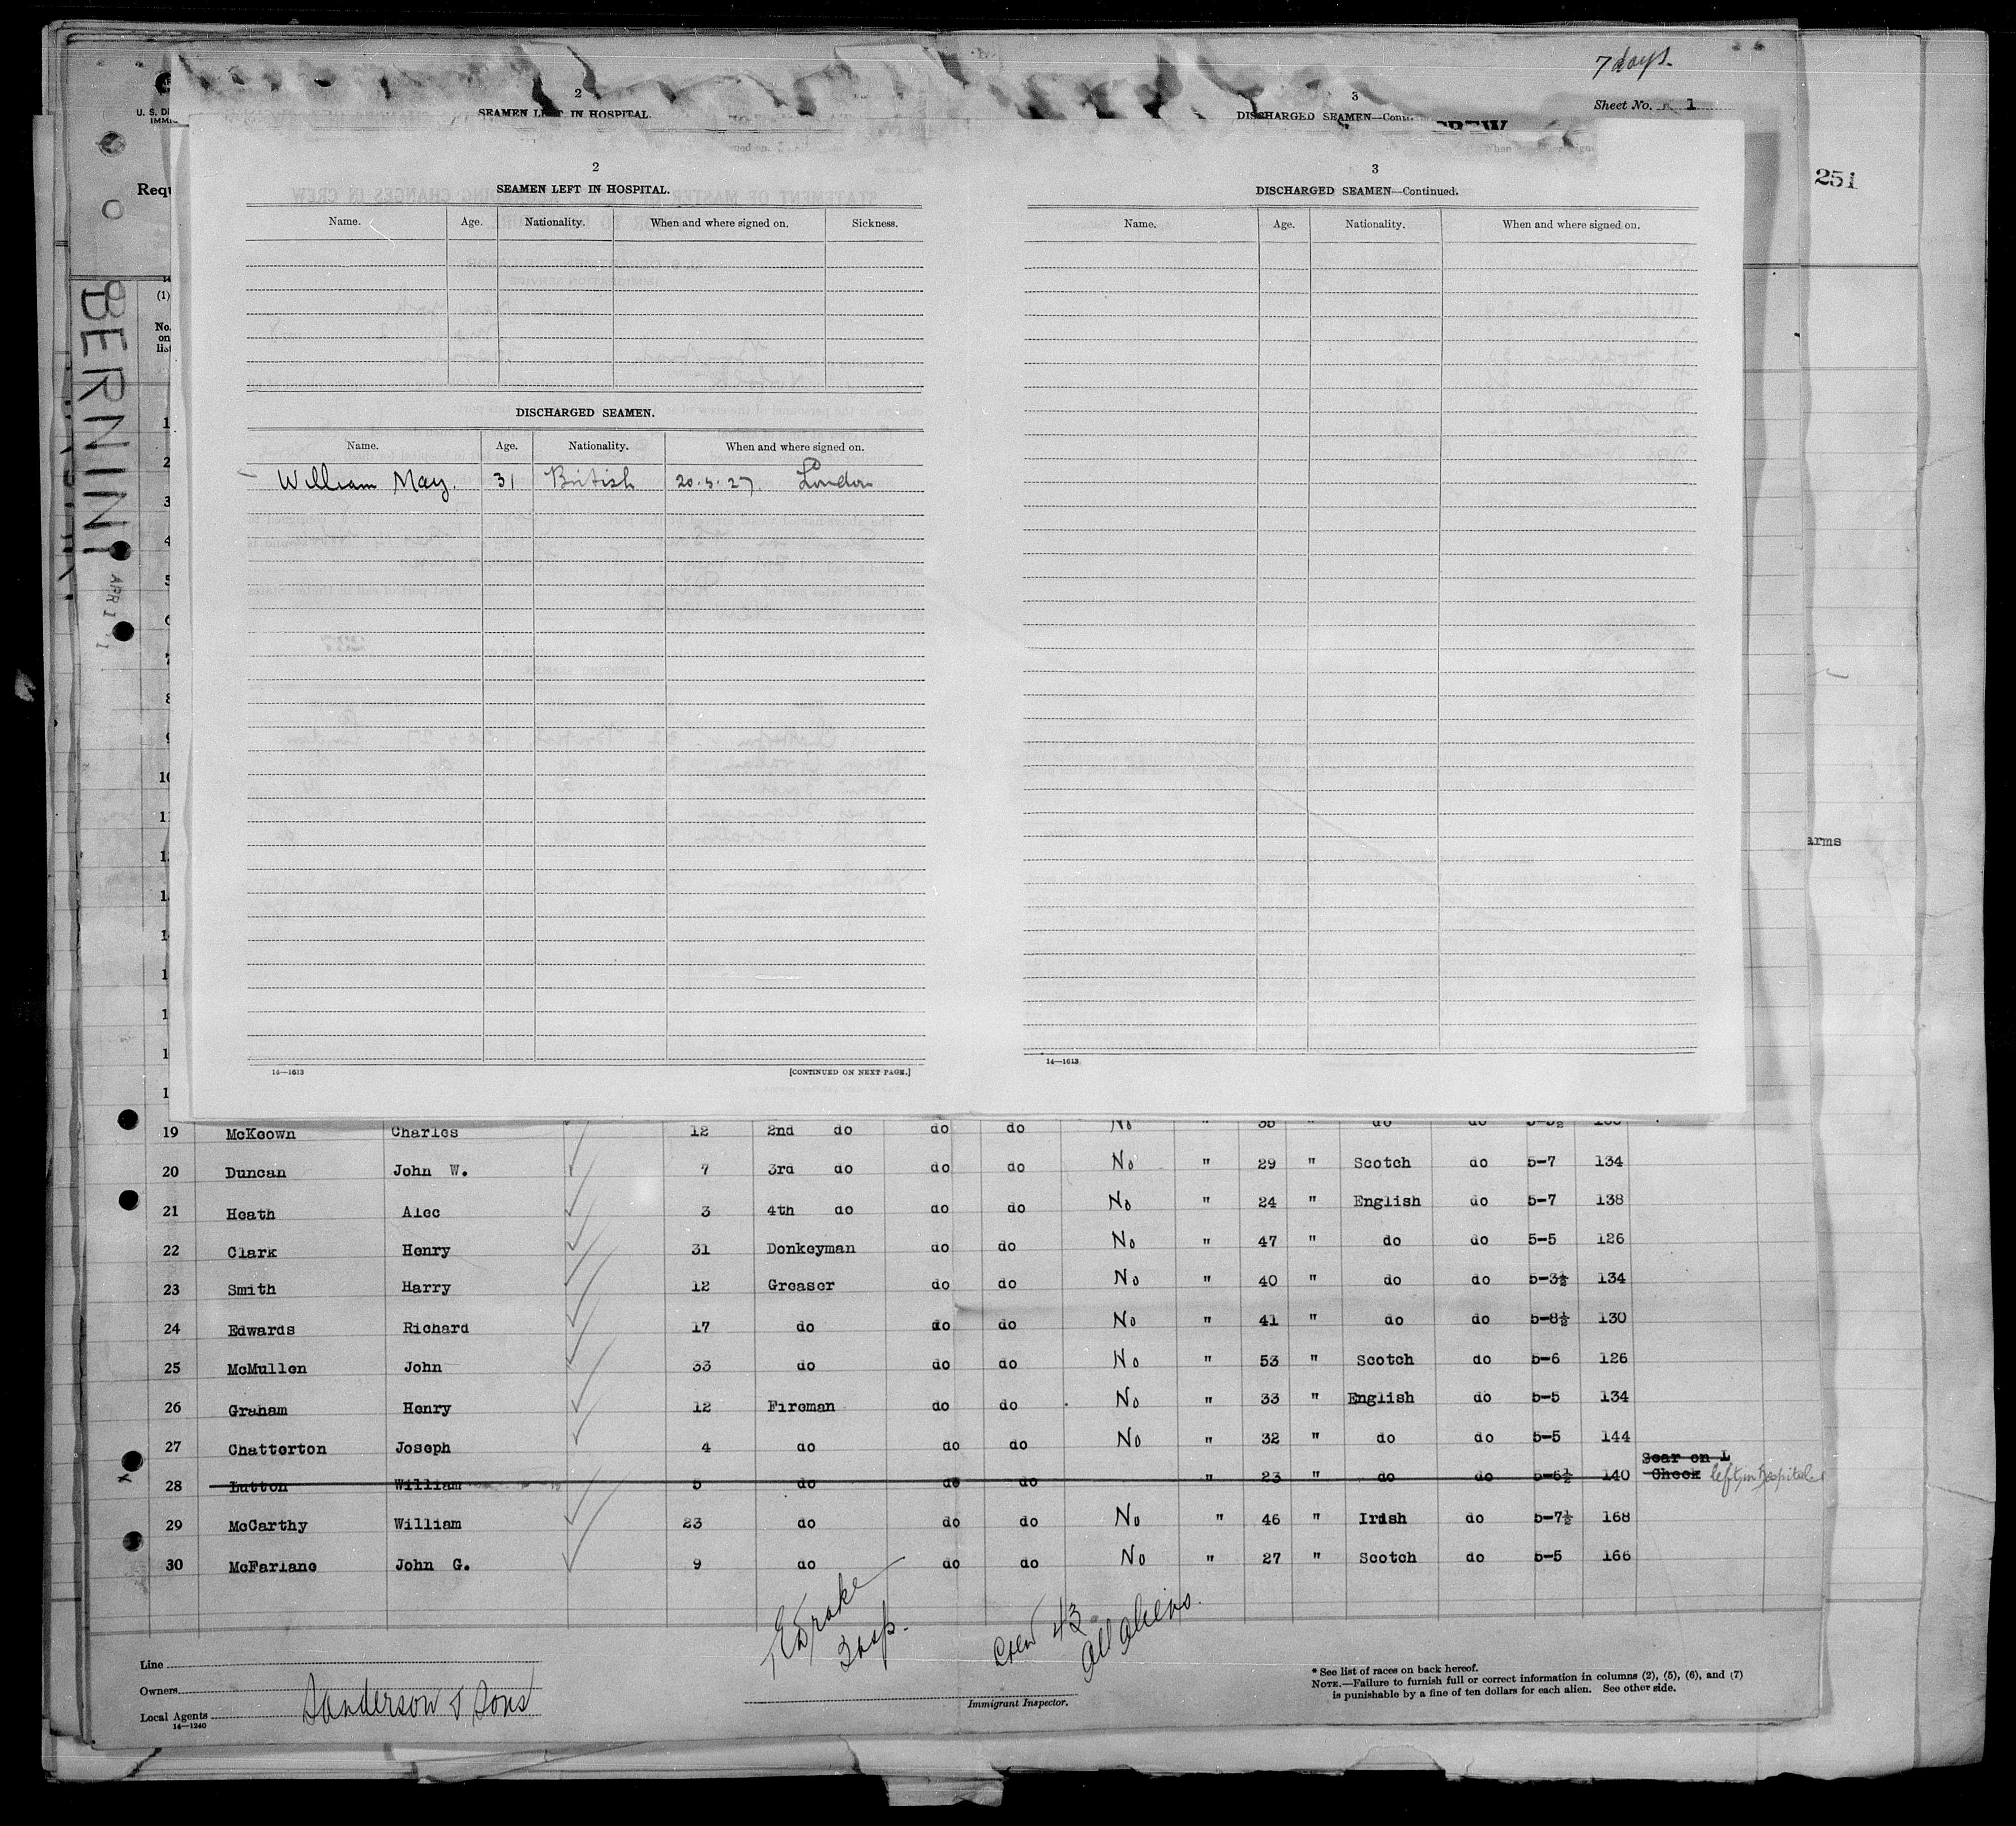 7 days.
Sheet No. 1
2
SEAMEN LEFT IN HOSPITAL.
3
DISCHARGED SEAMEN—Cont
U. S. D
IMMI
Requ
251
BERNINI
APR 1
(1)
No. on list
2
SEAMEN LEFT IN HOSPITAL.
Name. Age. Nationality. When and where signed on. Sickness.
DISCHARGED SEAMEN.
Name. Age. Nationality. When and where signed on.
William May. 31 British 20.5.27. London
14—1613 [CONTINUED ON NEXT PAGE.]
3
DISCHARGED SEAMEN—Continued.
Name. Age. Nationality. When and where signed on.
14—1613
arms
19 McKeown Charles 12 2nd do do do No " 35 " do do
20 Duncan John W. 7 3rd do do do No " 29 " Scotch do 5-7 134
21 Heath Alec 3 4th do do do No " 24 " English do 5-7 138
22 Clark Henry 31 Donkeyman do do No " 47 " do do 5-5 126
23 Smith Harry 12 Greaser do do No " 40 " do do 5-3½ 134
24 Edwards Richard 17 do do do No " 41 " do do 5-8½ 130
25 McMullen John 33 do do do No " 53 " Scotch do 5-6 126
26 Graham Henry 12 Fireman do do No " 33 " English do 5-5 134
27 Chatterton Joseph 4 do do do No " 32 " do do 5-5 144
28 Lutton William 5 do do do " 23 " do do 5-6½ 140 Scar on L Cheek left in hospital
29 McCarthy William 23 do do do No " 46 " Irish do 5-7½ 168
30 McFarlane John G. 9 do do do No " 27 " Scotch do 5-5 166
Drake
Insp.
Crew 43
All Aliens.
Line
Owners
Local Agents Sanderson & Sons
14—1240
Immigrant Inspector.
* See list of races on back hereof.
NOTE.—Failure to furnish full or correct information in columns (2), (5), (6), and (7)
is punishable by a fine of ten dollars for each alien. See other side.